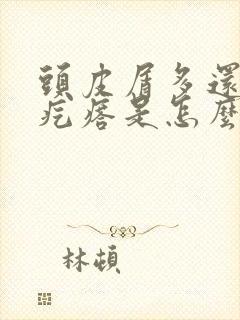 頭皮屑多還
疙瘩是怎麼
林頓